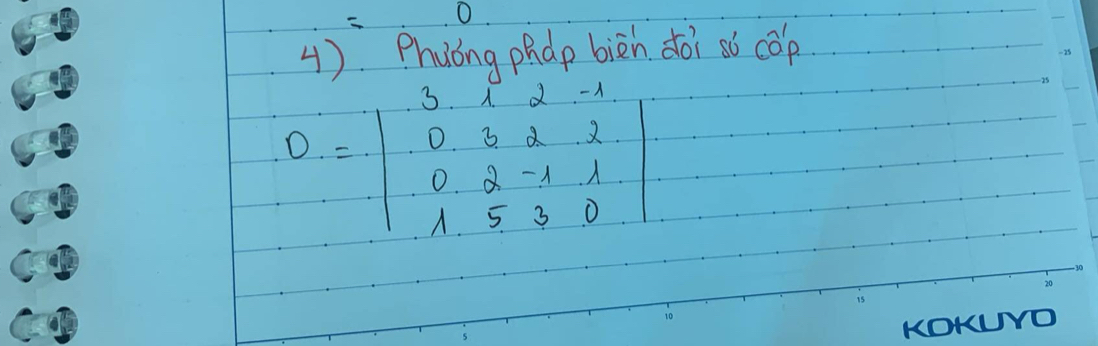 = 0
4) Phương pháp biến đổi sơ cấp
3 1 2 -1
D = 0 3 2 2
0 2 -1 1
1 5 3 0
25
25
30
5 10 15 20
KOKUYO